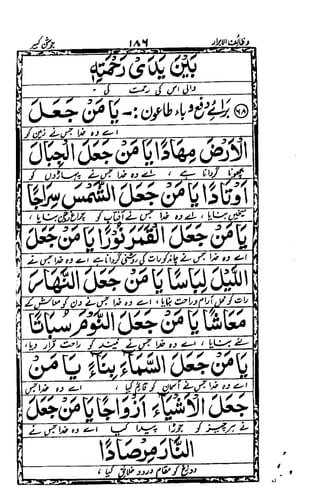 وظائف الابرار ۱۸۶ جوشن کبیر
بَیْنَ یَدَیْ رَحْمَتِهٖ
والی اس کی رحمت کی ۔
۶۸ برائے دفع وباء طاعون :- یَا مَنْ جَعَلَ
اے وہ خدا جس نے زمین کو
الْاَرْضَ مِهَادًا یَا مَنْ جَعَلَ الْجِبَالَ
بچھونا گردانا ہے ، اے وہ خدا جس نے پہاڑوں کو
اَوْتَادًا یَا مَنْ جَعَلَ الشَّمْسَ سِرَاجًا
میخیں بنایا ، اے وہ خدا جس نے آفتاب کو چراغ بنایا ،
یَا مَنْ جَعَلَ الْقَمَرَ نُوْرًا یَا مَنْ جَعَلَ
اے وہ خدا جس نے چاند کو رات کی روشنی گردانا ہے اے وہ خدا جس نے
اللَّیْلَ لِبَاسًا یَا مَنْ جَعَلَ النَّهَارَ
رات کو محل آرام و راحت بنایا ، اے وہ خدا جس نے دن کو معاش کے
مَعَاشًا یَا مَنْ جَعَلَ النَّوْمَ سُبَاتًا
لئے بنایا ، اے وہ خدا جس نے نیند کو راحت قرار دیا ،
یَا مَنْ جَعَلَ السَّمَآءَ بِنَآءً یَا مَنْ
اے وہ خدا جس نے آسمان کو قائم کیا ، اے وہ خدا جس
جَعَلَ الْاَشْیَآءَ اَزْوَاجًا یَا مَنْ جَعَلَ
نے ہر چیز کو جوڑا پیدا کیا اے وہ خدا جس نے
النَّارَ مِرْصَادًا
دوزخ کو مقام ورود خلائق کیا ،